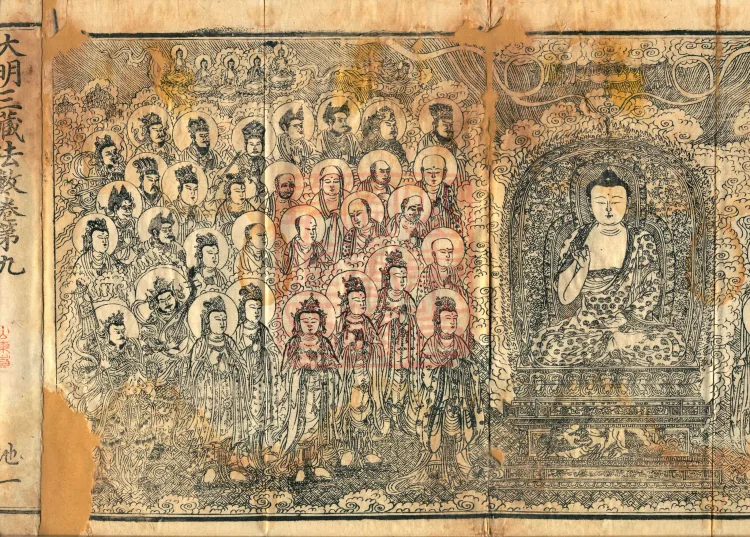 大明三藏法數卷第九
池一